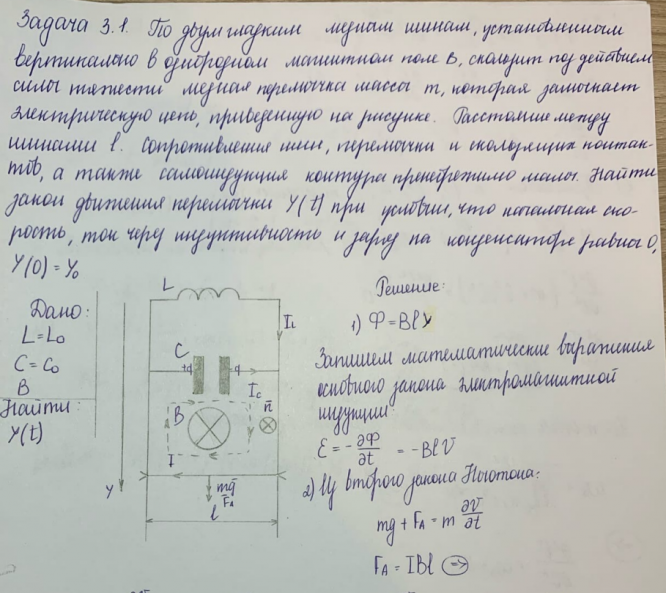 Задача 3.1. По двум гладким медным шинам, установленным
вертикально в однородном магнитном поле B, скользит под действием
силы тяжести медная перемычка массы m, которая замыкает
электрическую цепь, приведенную на рисунке. Расстояние между
шинами l. Сопротивления шин, перемычки и скользящих контак-
тов, а также самоиндукция контура пренебрежимо малы. Найти
закон движения перемычки Y(t) при условии, что начальная ско-
рость, ток через индуктивность и заряд на конденсаторе равны 0,
Y(0) = Y₀
Дано:
L = L₀
C = C₀
B
Найти:
Y(t)
L
I_L
C
+q
q
I_C
B
n̄
I
Y
mḡ
F̄_A
l
Решение:
1) Ф = Bly
Запишем математические выражения
основного закона электромагнитной
индукции:
ℰ = - ∂Ф/∂t = -Blv̄
2) Из второго закона Ньютона:
mg + F_A = m ∂v̄/∂t
F_A = IBl ⇒